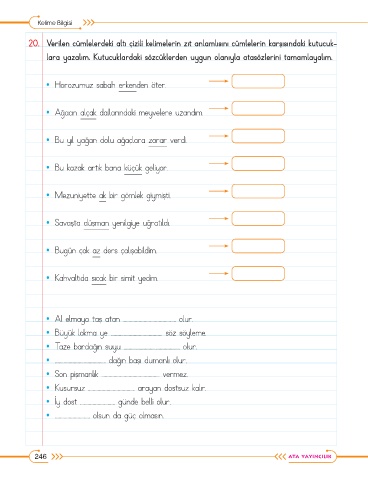 Kelime Bilgisi
20. Verilen cümlelerdeki altı çizili kelimelerin zıt anlamlısını cümlelerin karşısındaki kutucuk-
lara yazalım. Kutucuklardaki sözcüklerden uygun olanıyla atasözlerini tamamlayalım.
• Horozumuz sabah erkenden öter.
• Ağacın alçak dallarındaki meyvelere uzandım.
• Bu yıl yağan dolu ağaçlara zarar verdi.
• Bu kazak artık bana küçük geliyor.
• Mezuniyette ak bir gömlek giymişti.
• Savaşta düşman yenilgiye uğratıldı.
• Bugün çok az ders çalışabildim.
• Kahvaltıda sıcak bir simit yedim.
• Al elmaya taş atan ........................ olur.
• Büyük lokma ye ........................ söz söyleme.
• Taze bardağın suyu ........................ olur.
• ........................ dağın başı dumanlı olur.
• Son pişmanlık ........................ vermez.
• Kusursuz ........................ arayan dostsuz kalır.
• İyi dost ................ günde belli olur.
• ................ olsun da güç olmasın.
246
ATA YAYINCILIK